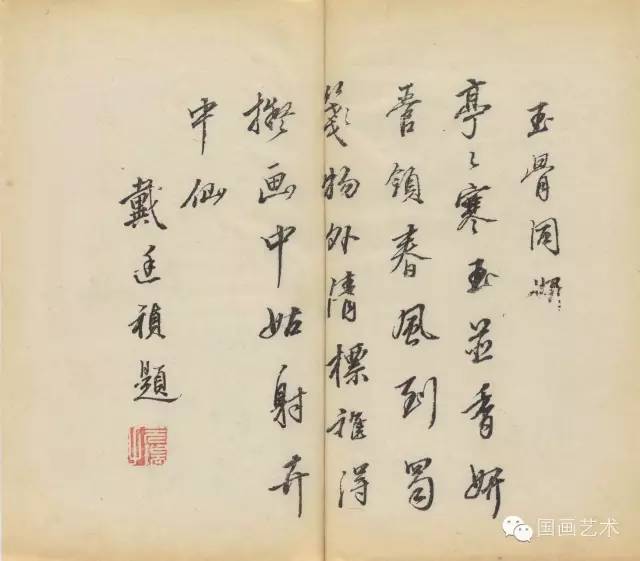 玉骨同
亭〻寒玉並香妍
管領春風到蜀
箋物外清標誰得
擬画中姑射卉
中仙
戴廷禎題
国画艺术